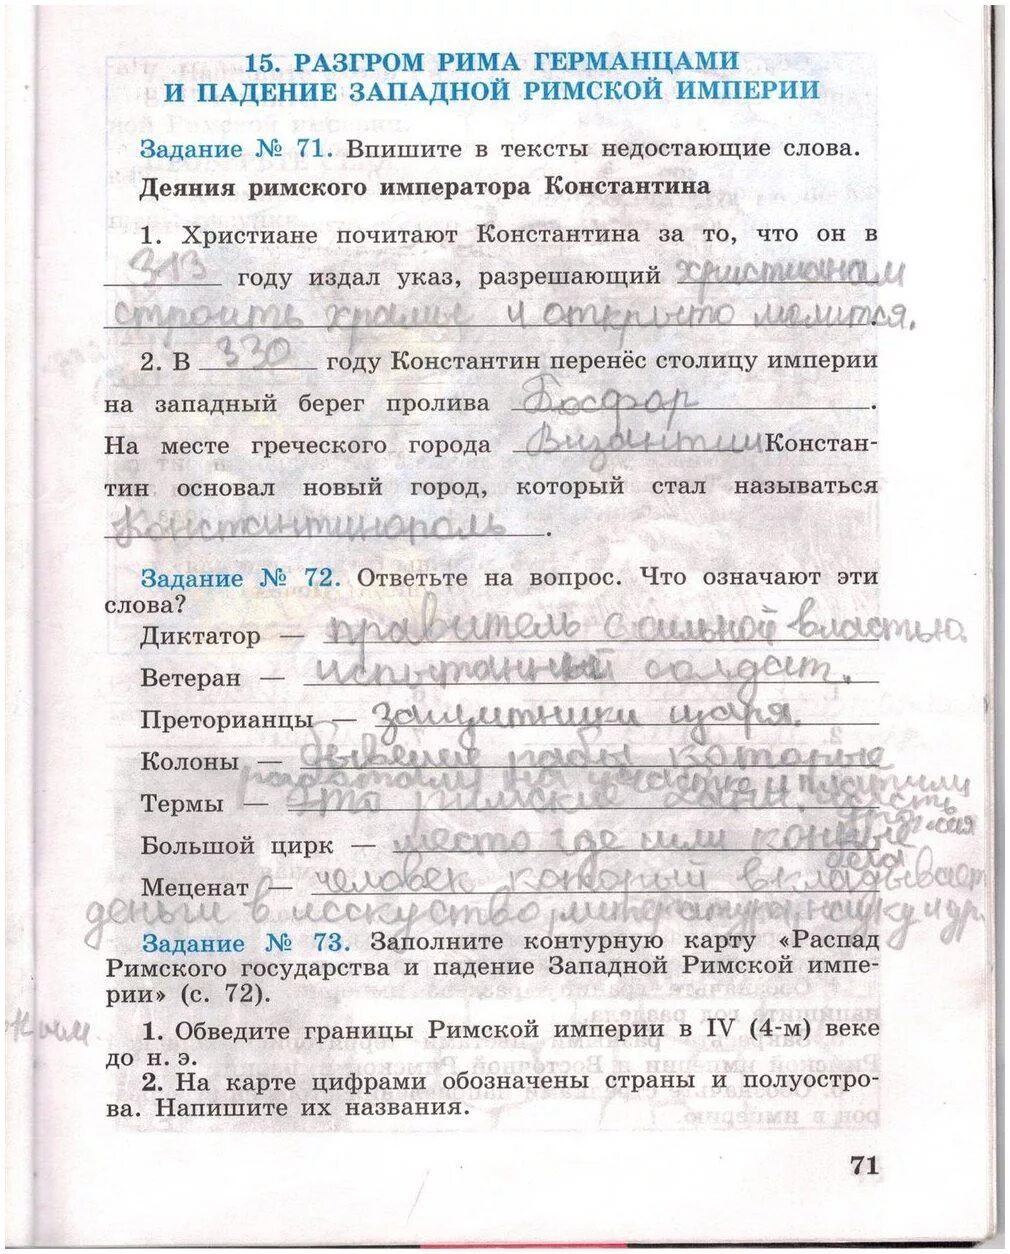 15. РАЗГРОМ РИМА ГЕРМАНЦАМИ
И ПАДЕНИЕ ЗАПАДНОЙ РИМСКОЙ ИМПЕРИИ
Задание № 71. Впишите в тексты недостающие слова.
Деяния римского императора Константина
1. Христиане почитают Константина за то, что он в
313 году издал указ, разрешающий христианам
строить храмы и открыто молится.
2. В 330 году Константин перенёс столицу империи
на западный берег пролива Босфор.
На месте греческого города Византии Констан-
тин основал новый город, который стал называться
Константинополь.
Задание № 72. Ответьте на вопрос. Что означают эти
слова?
Диктатор — правитель с сильной властью.
Ветеран — испытанный солдат.
Преторианцы — защитники царя.
Колоны — бывшие рабы которые
работали на участке и платили
часть
Термы — это римские бани.
Большой цирк — место где шли конные
Меценат — человек который вкладывает
деньги в исскуство, литературу, науку и др.
Задание № 73. Заполните контурную карту «Распад
Римского государства и падение Западной Римской импе-
рии» (с. 72).
1. Обведите границы Римской империи в IV (4-м) веке
до н. э.
2. На карте цифрами обозначены страны и полуостро-
ва. Напишите их названия.
71